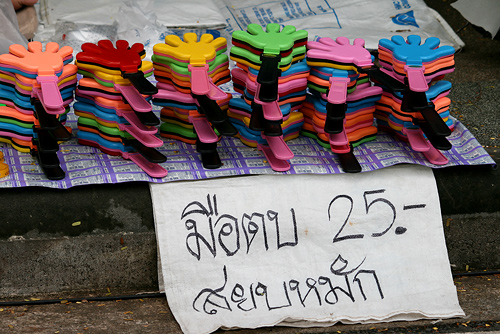 มือตบ 25.-
สยบหมัก